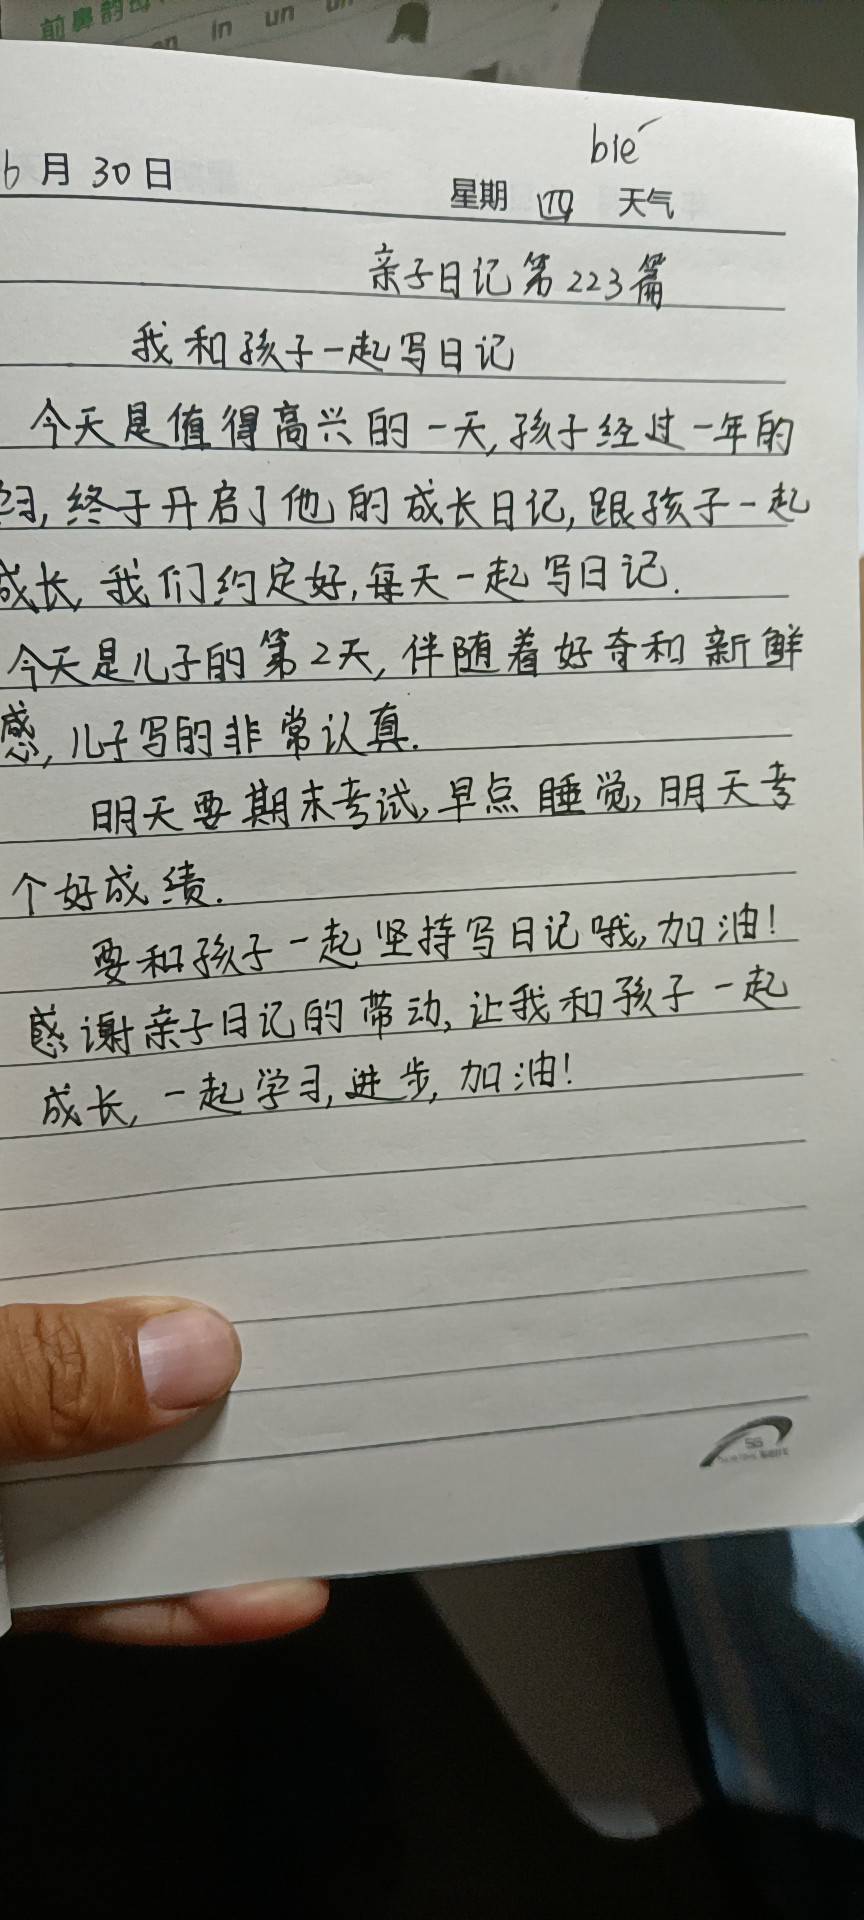 前鼻韵母
in un
bié
6月30日 星期 四 天气
亲子日记第223篇
我和孩子一起写日记
今天是值得高兴的一天,孩子经过一年的
习,终于开启了他的成长日记,跟孩子一起
成长,我们约定好,每天一起写日记.
今天是儿子的第2天,伴随着好奇和新鲜
感,儿子写的非常认真.
明天要期末考试,早点睡觉,明天考
个好成绩.
要和孩子一起坚持写日记哦,加油!
感谢亲子日记的带动,让我和孩子一起
成长,一起学习,进步,加油!